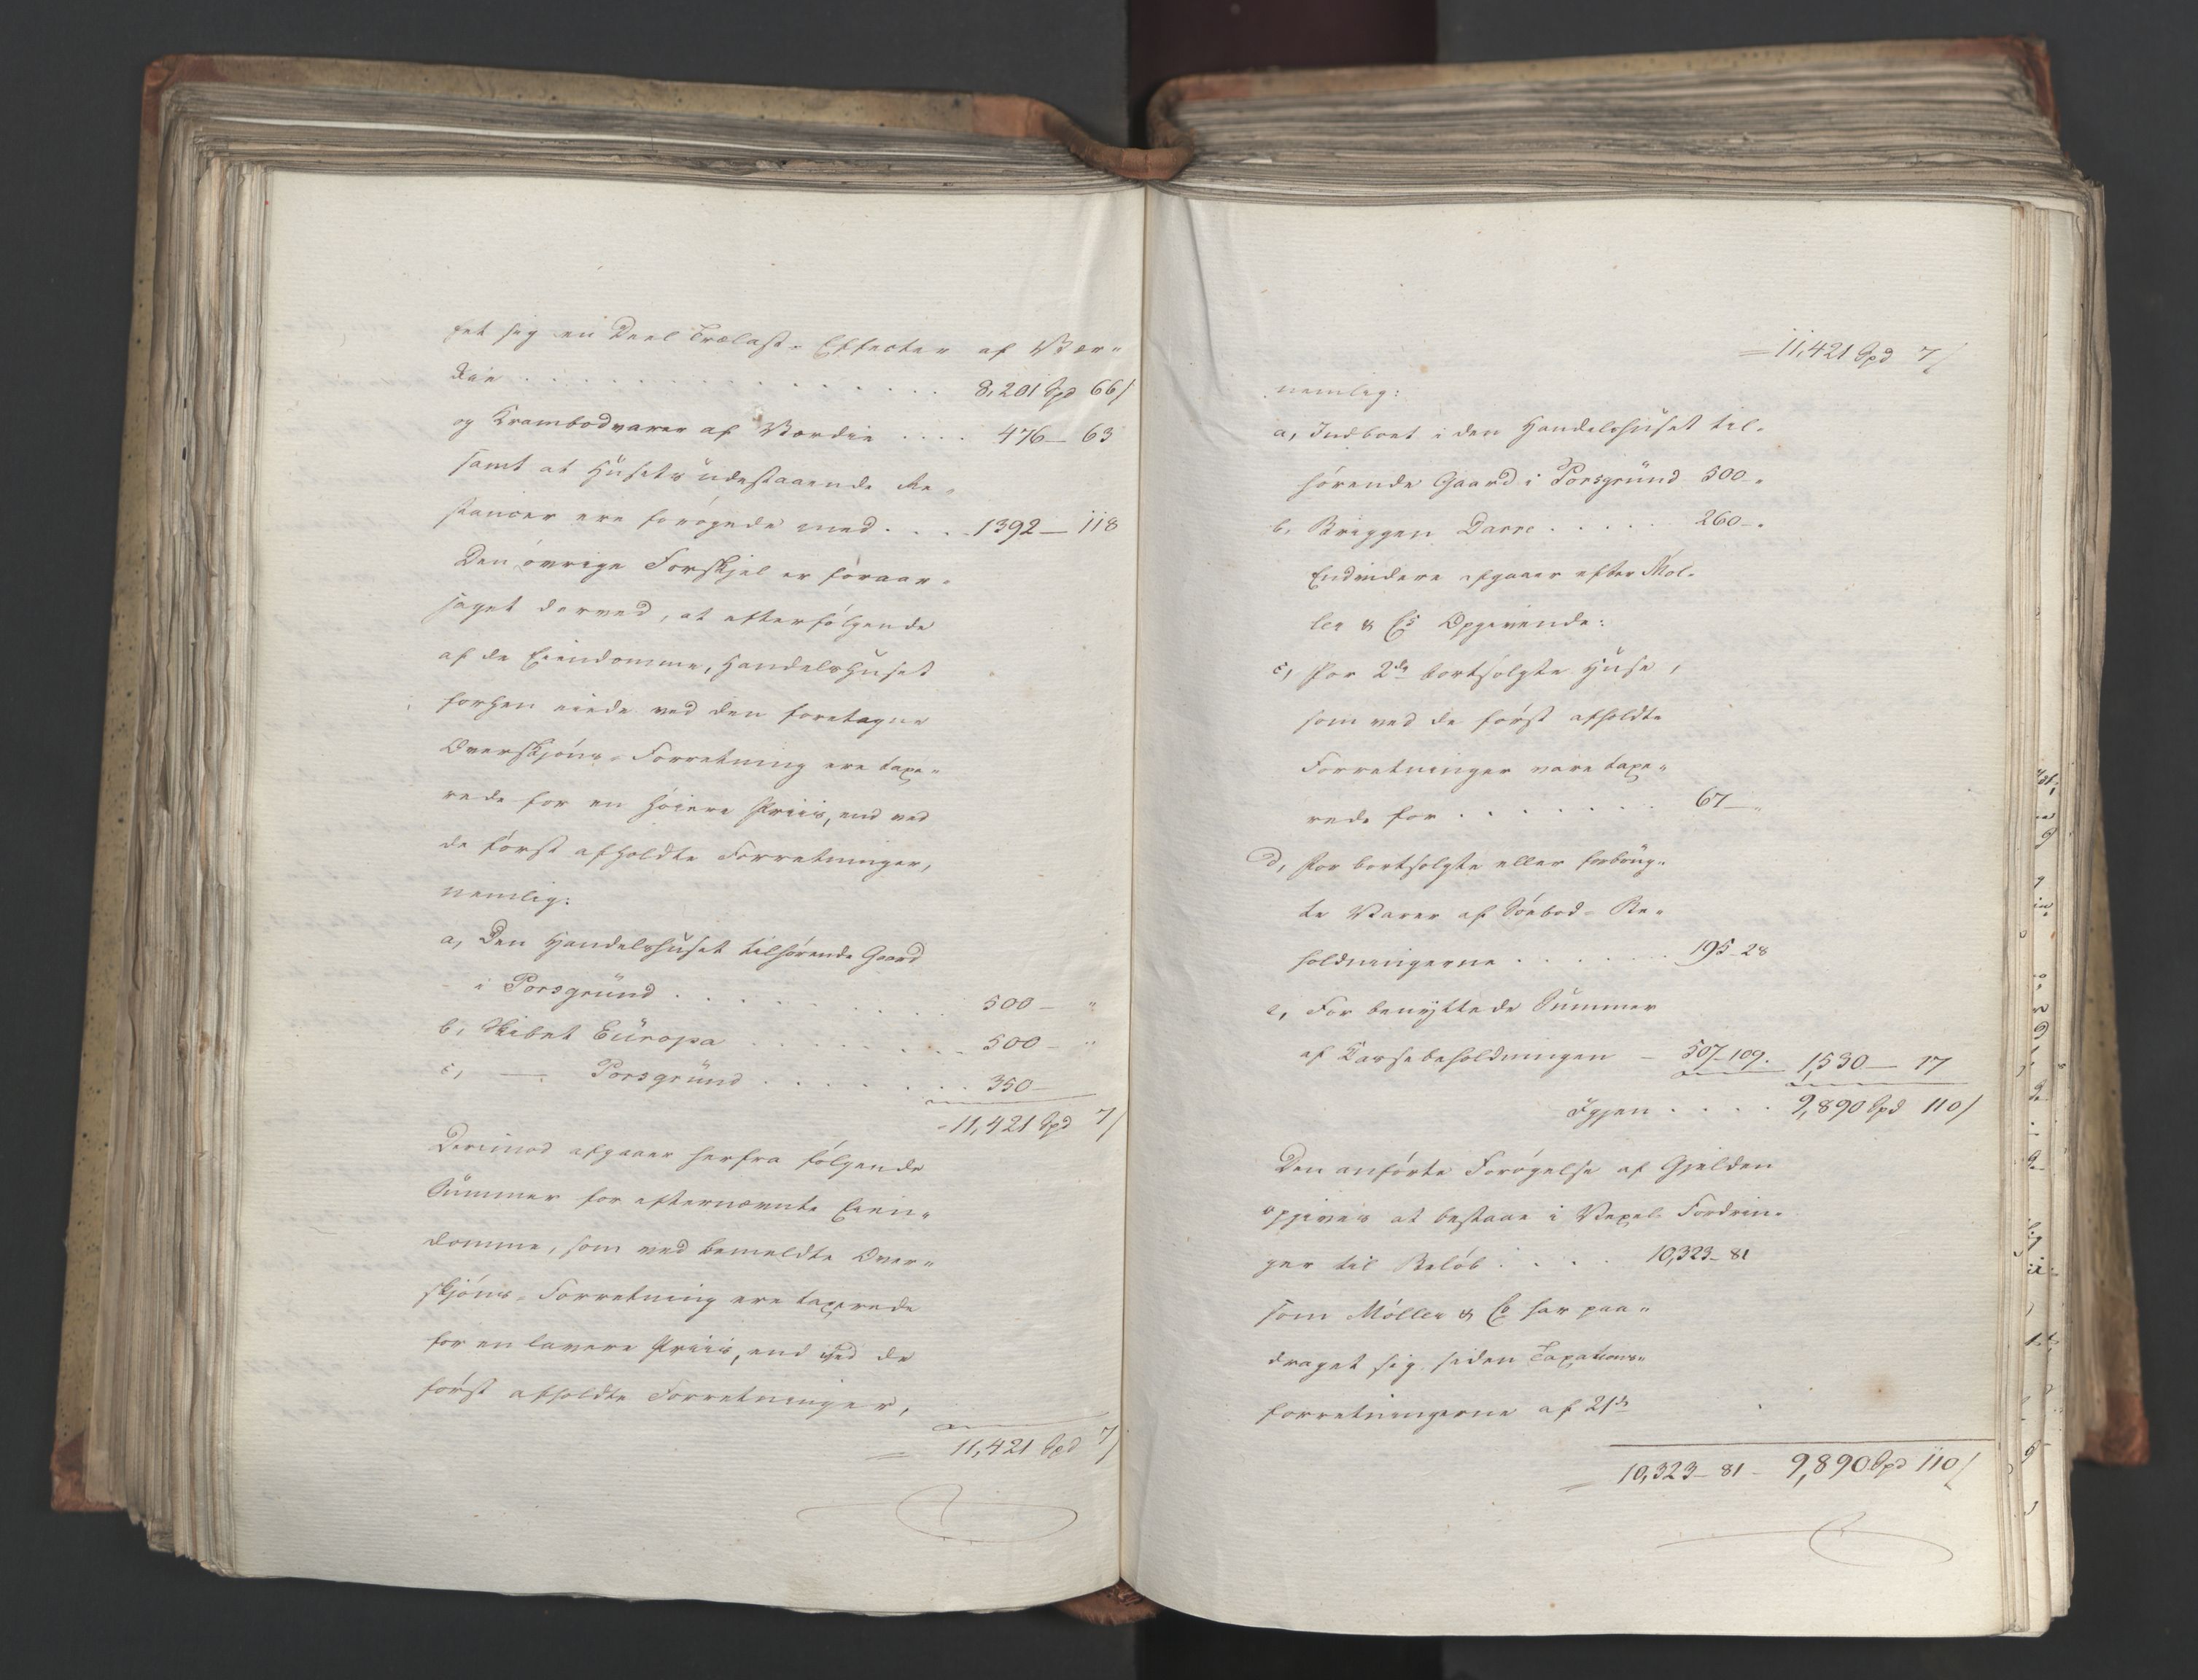 fet sig en Deel Trælast-Effecter af Vær-
die . . . . . . . . 8,201 Spd 66 /
og Krambodvarer af Værdie . . . . 476 — 63
samt at Husets udestaaende Re-
stancer ere forøgede med . . . . 1392 — 118
Den øvrige Forskjel er foraar-
saget derved, at efterfølgende
af de Eiendomme, Handelshuset
forhen eiede ved den foretagne
Overskjøns-Forretning ere taxe-
rede for en høiere Priis, end ved
de først afholdte Forretninger,
nemlig:
a, Den Handelshuset tilhørende Gaard
i Porsgrund . . . . . 500 — "
b, Skibet Europa . . . . . 500 — "
c, — Porsgrund . . . . . 350 —
= 11,421 Spd 7 /
Derimod afgaaer herfra følgende
Summer for efternævnte Eien-
domme, som ved bemeldte Over-
skjøns-Forretning ere taxerede
for en lavere Priis, end ved de
først afholdte Forretninger,
= 11,421 Spd 7 /
= 11,421 Spd 7 /
nemlig:
a, Indboet i den Handelshuset til-
hørende Gaard i Porsgrund 500 - "
b, Briggen Darre . . . . . 260 - "
Endvidere afgaaer efter Møl-
ler & Cs Opgivende:
c, For 2de bortsolgte Huse,
som ved de først afholdte
Forretninger vare taxe-
rede for . . . . . . . 67 — "
d, For bortsolgte eller forbrug-
te Varer af Søebod-Be-
holdningerne . . . . . . 195 - 28
e, For benyttede Summer
af Cassebeholdningen — 507 - 109. 1,530 — 17
Igjen . . . . 9,890 Spd 110 /
Den anførte Forøgelse af Gjelden
opgives at bestaae i Vexel-Fordrin-
ger til Beløb . . . . 10,323 - 81
som Møller & Co har paa-
draget sig siden Taxations-
forretningerne af 21de
= 10,323 - 81 - 9,890 Spd 110 /